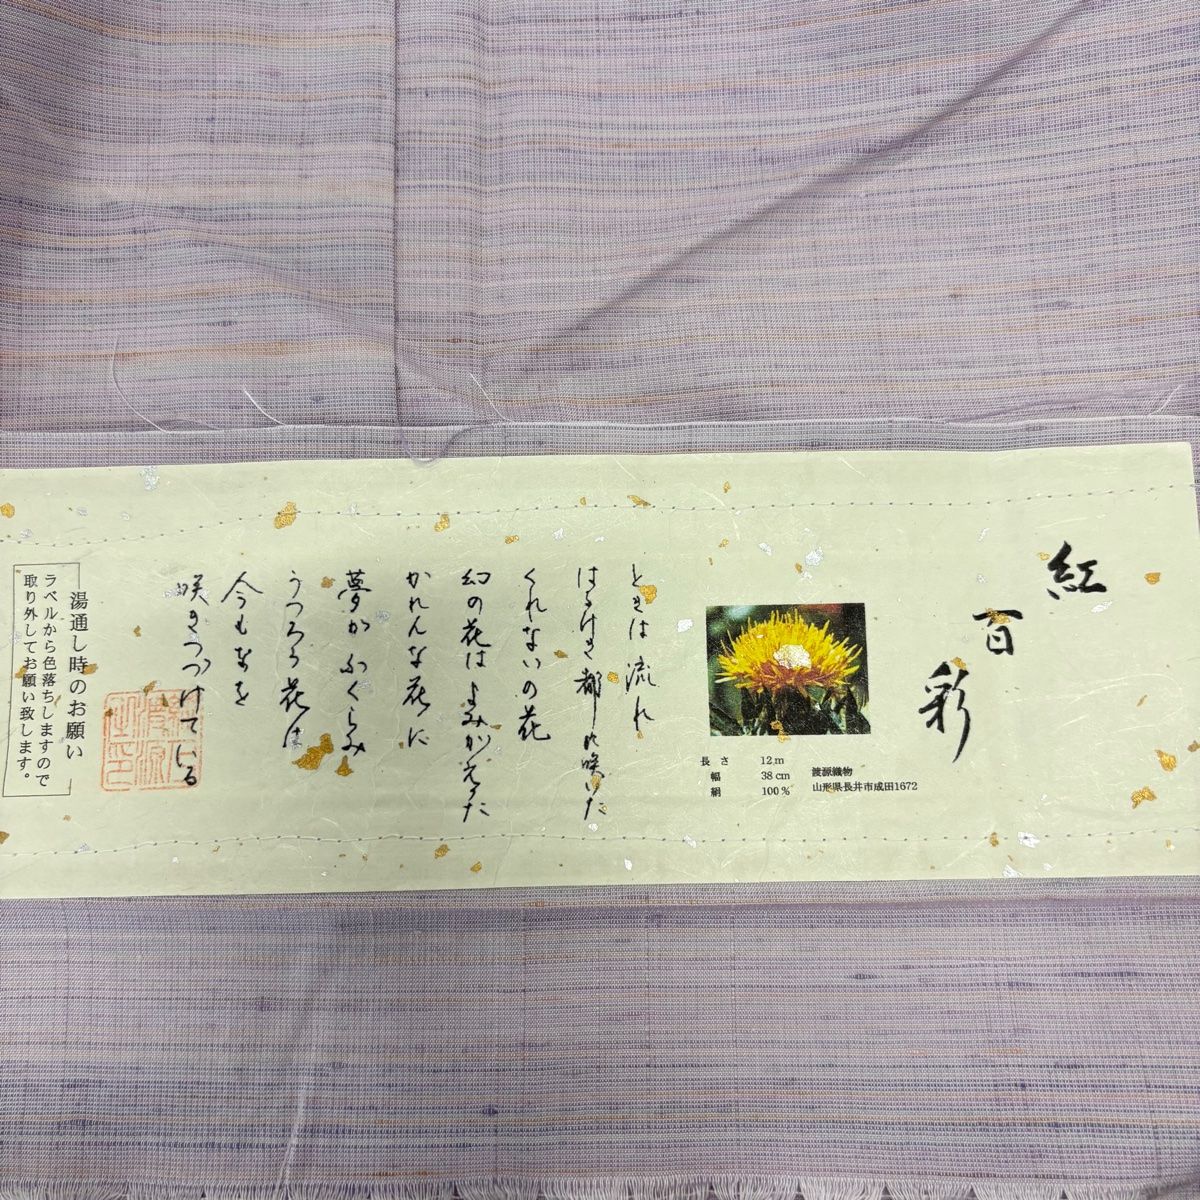 紅
百
彩
長さ 12m
幅 38cm
絹 100%
渡源織物
山形県長井市成田1672
ときは流れ
はるけき都に咲いた
くれないの花
幻の花はよみがえった
かれんな花に
夢かふくらみ
うつろう花は
今もなを
咲きつづけている
湯通し時のお願い
ラベルから色落ちしますので
取り外してお願い致します。